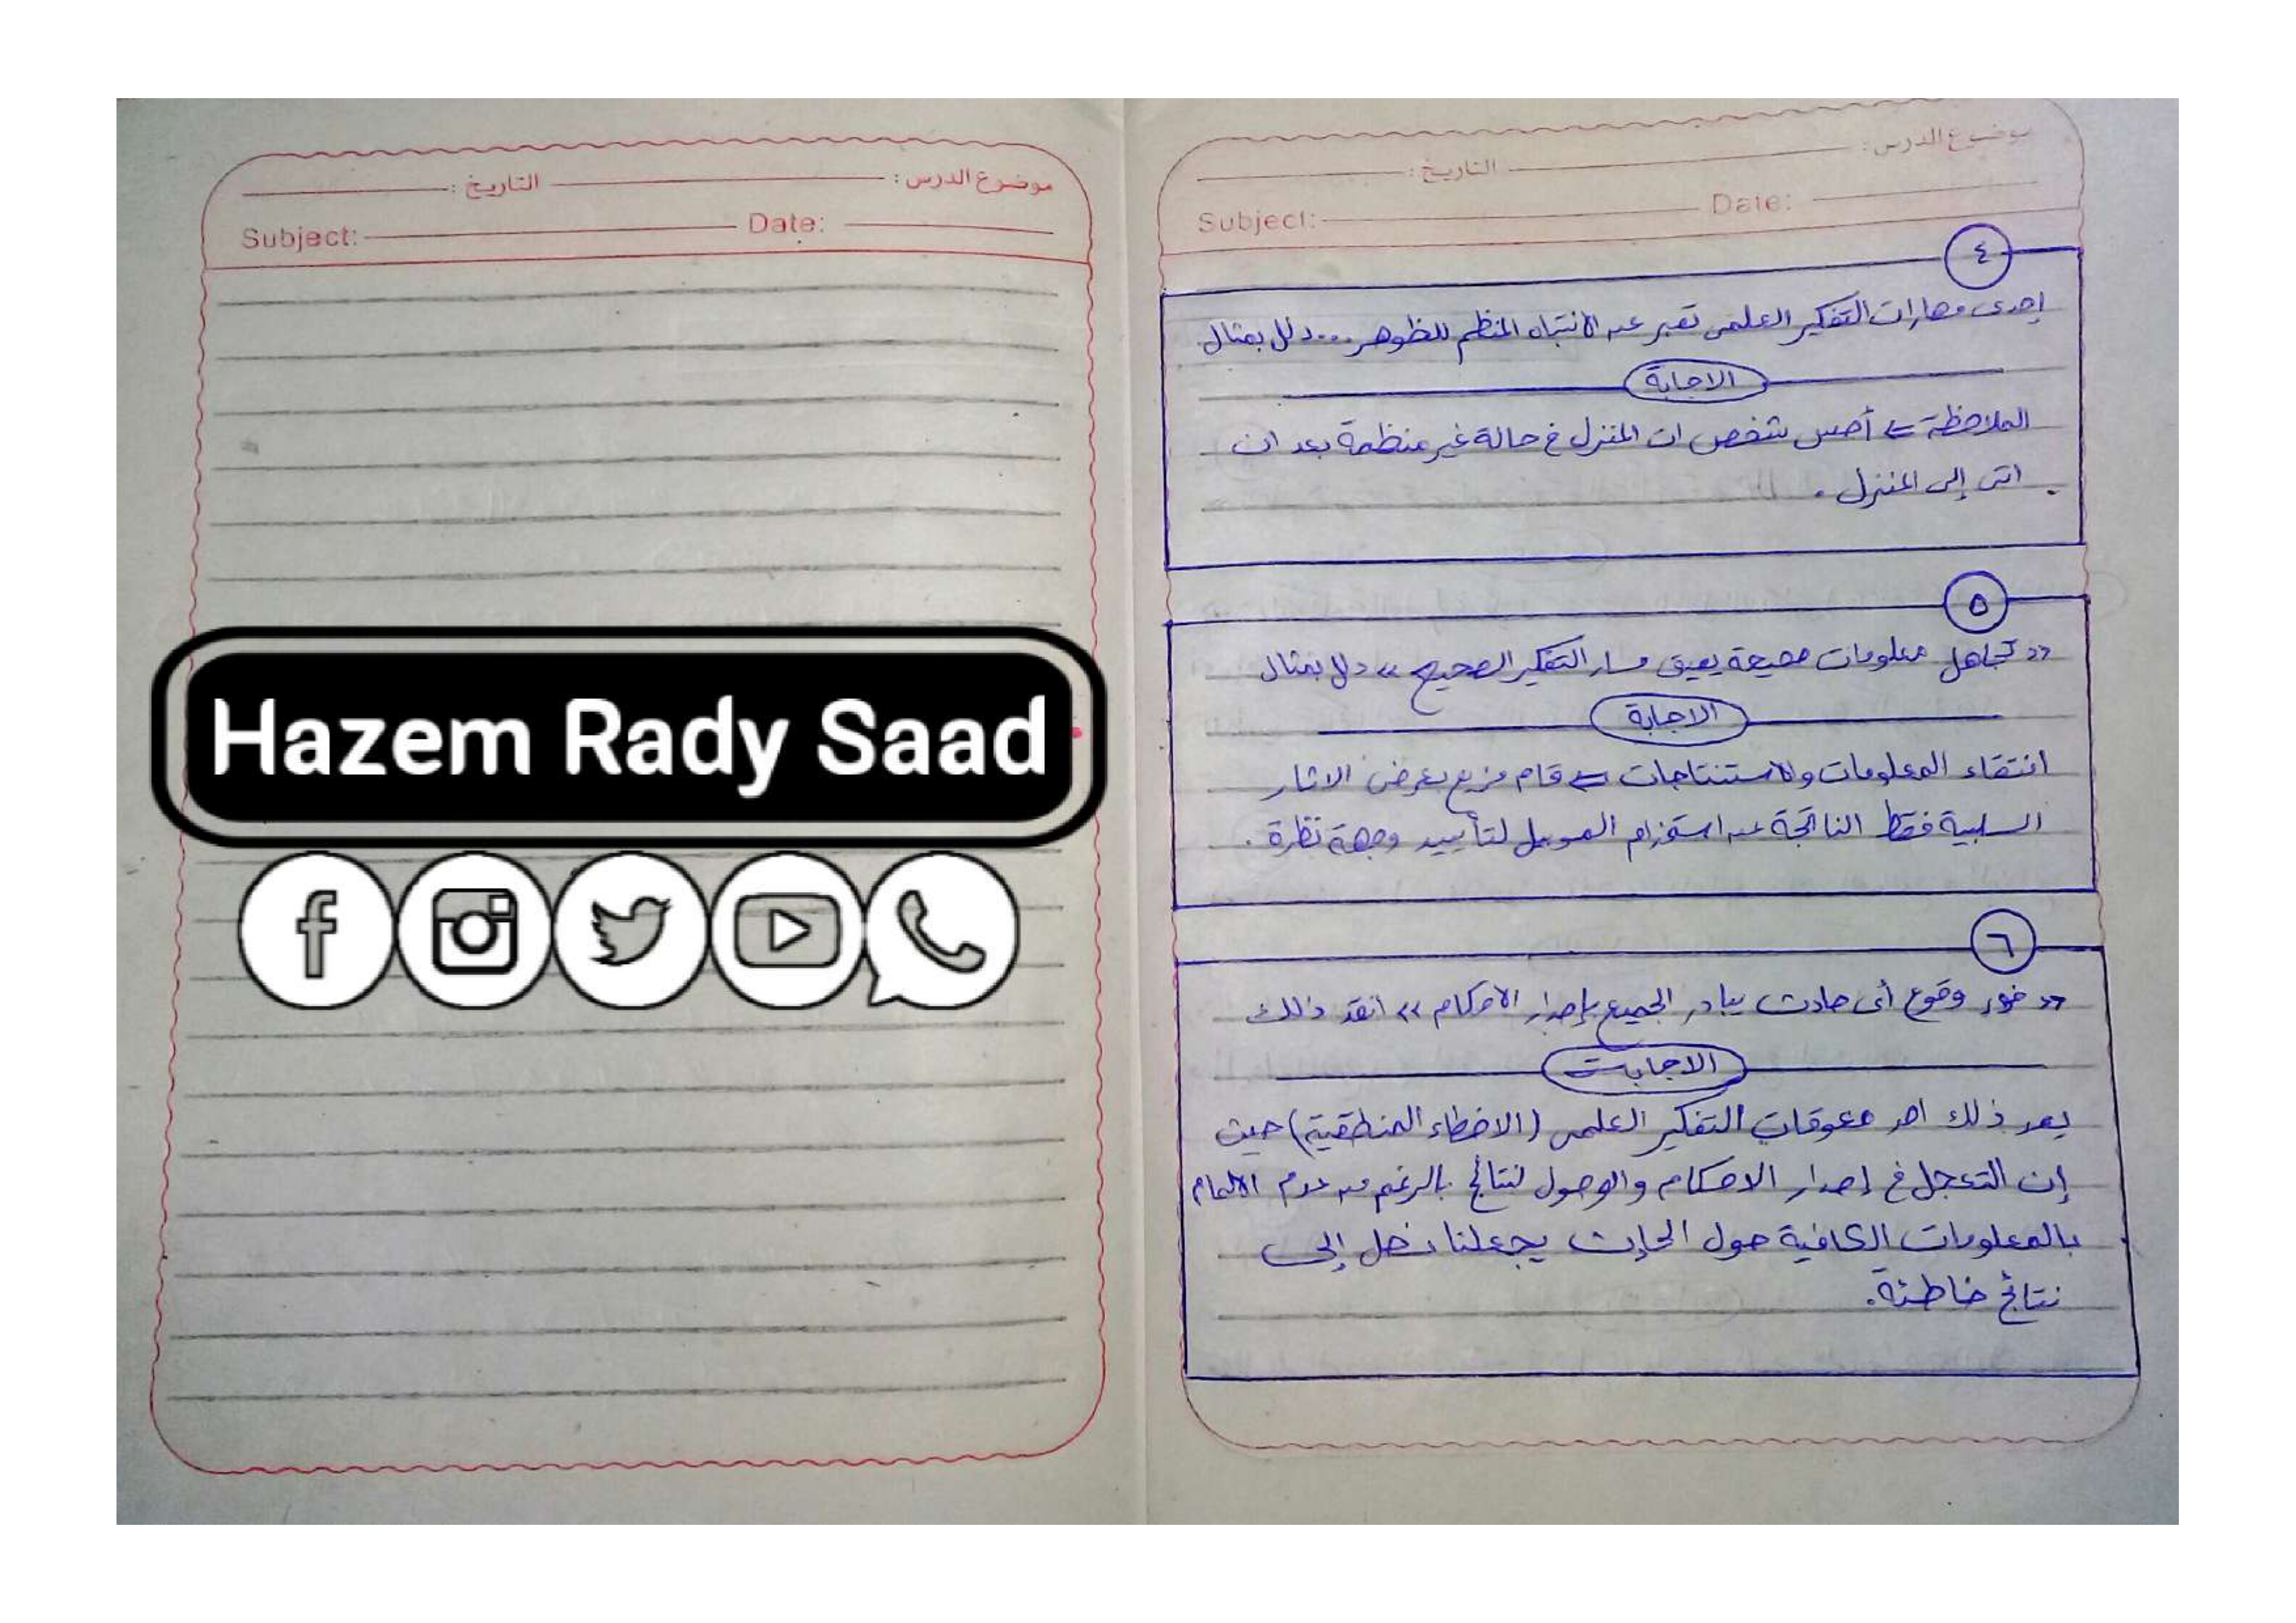 موضوع الدرس: التاريخ:
Subject: Date:
٤
إحدى مهارات التفكير العلمى تعبر عن الانتباه المنظم للظوهر ... دلل بمثال
الاجابة
الملاحظة ⇐ أحس شخص ان المنزل فى حالة غير منظمة بعد ان
اتى إلى المنزل.
٥
«تجاهل معلومات صحيحة يعيق مسار التفكير الصحيح» دلل بمثال
الاجابة
انتقاء المعلومات والاستنتاجات ⇐ قام مزيع بعرض الاثار
السلبية فقط الناتجة عن استخزام الموبيل لتأييد وجهة نظرة.
٦
«فور وقوع أى حادث يبادر الجميع بإصدار الاحكام» انقد ذلك
الاجابة
يعد ذلك احد معوقات التفكير العلمى (الاخطاء المنطقية) حيث
إن التعجل فى إصدار الاحكام والوصول لنتائج بالرغم من عدم الالمام
بالمعلومات الكافية حول الحادث يجعلنا نصل إلى
نتائج خاطئة.
موضوع الدرس: التاريخ:
Subject: Date:
Hazem Rady Saad